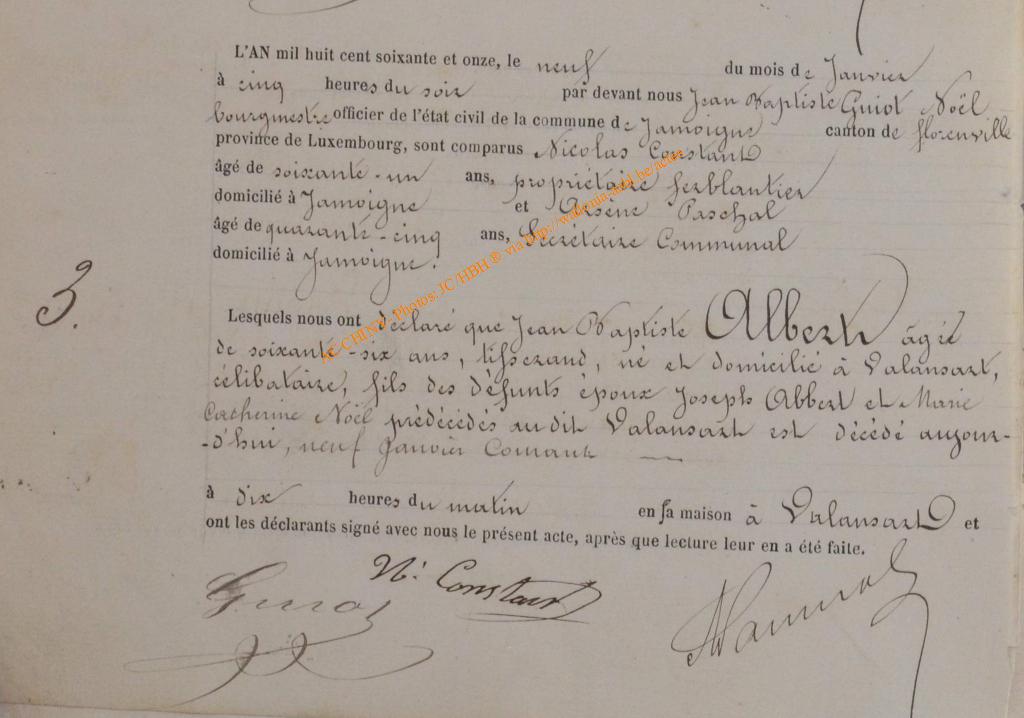 L'AN mil huit cent soixante et onze, le neuf du mois de Janvier
à cinq heures du soir par devant nous Jean Baptiste Guiot Noël
bourgmestre officier de l'état civil de la commune de Jamoigne canton de florenville
province de Luxembourg, sont comparus Nicolas Constant
âgé de soixante-un ans, propriétaire ferblantier
domicilié à Jamoigne et Arsène Paschal
âgé de quarante-cinq ans, Secrétaire Communal
domicilié à Jamoigne.
3.
Lesquels nous ont déclaré que Jean Baptiste Albert âgé
de soixante-six ans, tisserand, né et domicilié à Valansart,
célibataire, fils des défunts époux Joseph Albert et Marie
Catherine Noël prédécédés audit Valansart est décédé aujour-
-d'hui, neuf Janvier Courant
à dix heures du matin en sa maison à Valansart et
ont les déclarants signé avec nous le présent acte, après que lecture leur en a été faite.
N. Constant
Guiot
AC-CHINY - Photos: JC/HBH ® via http://wallonia-asbl.be/actes